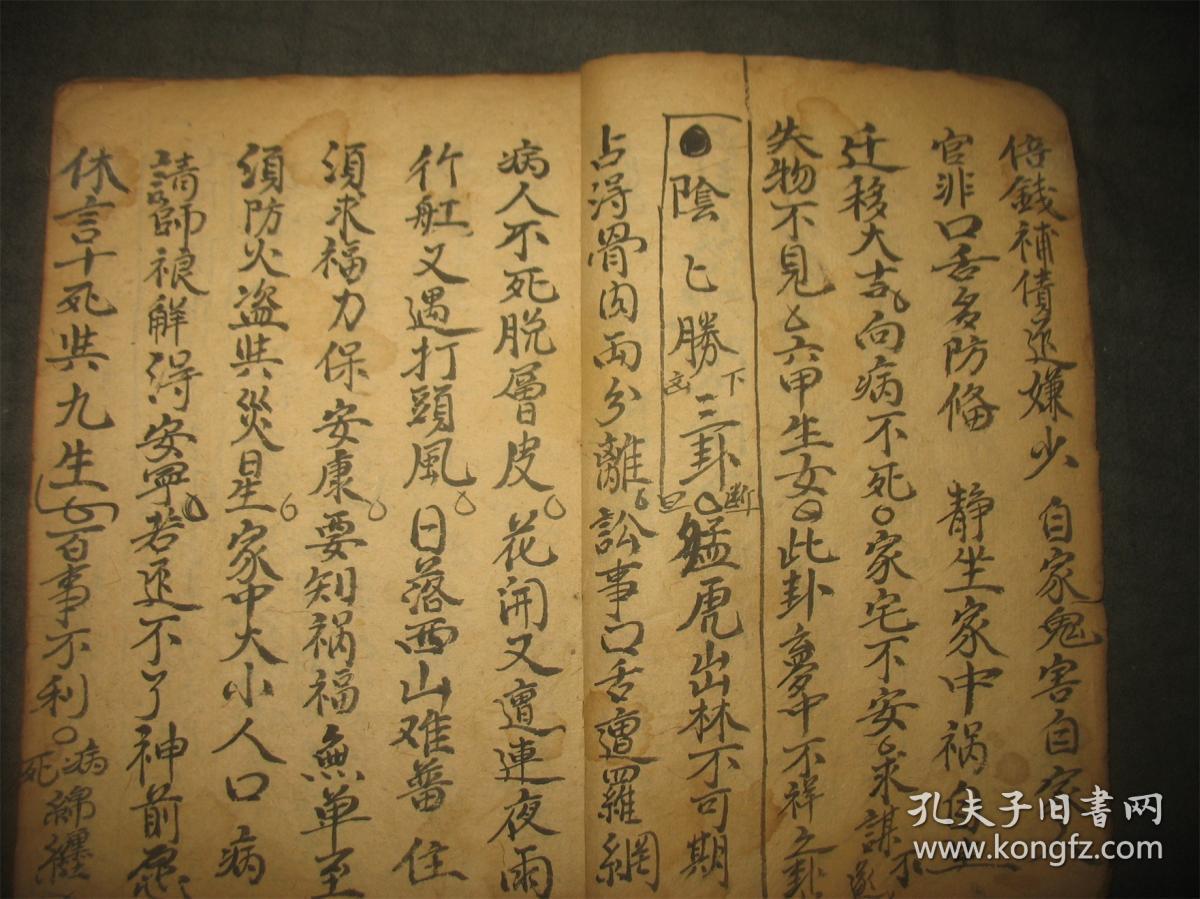 倍錢補債返嫌少　自家鬼害自家
官非口舌多防俻　静坐家中祸
迁移大吉向病不死○家宅不安求謀不遂
失物不見六甲生女○此卦夢中不祥之卦
●陰乀勝三卦　下下　断曰　猛虎出林不可期
占淂骨肉两分離　訟事口舌遭羅網
病人不死脱層皮　花開又遭連夜雨
行舡又遇打頭風　日落西山难蓄住
須求福力保安康　要知祸福無单至
須防火盗共災星　家中大小人口病
請師禳解淂安寧　若返不了神前愿
休言十死共九生　百事不利○病綿纏死
孔夫子旧书网
www.kongfz.com